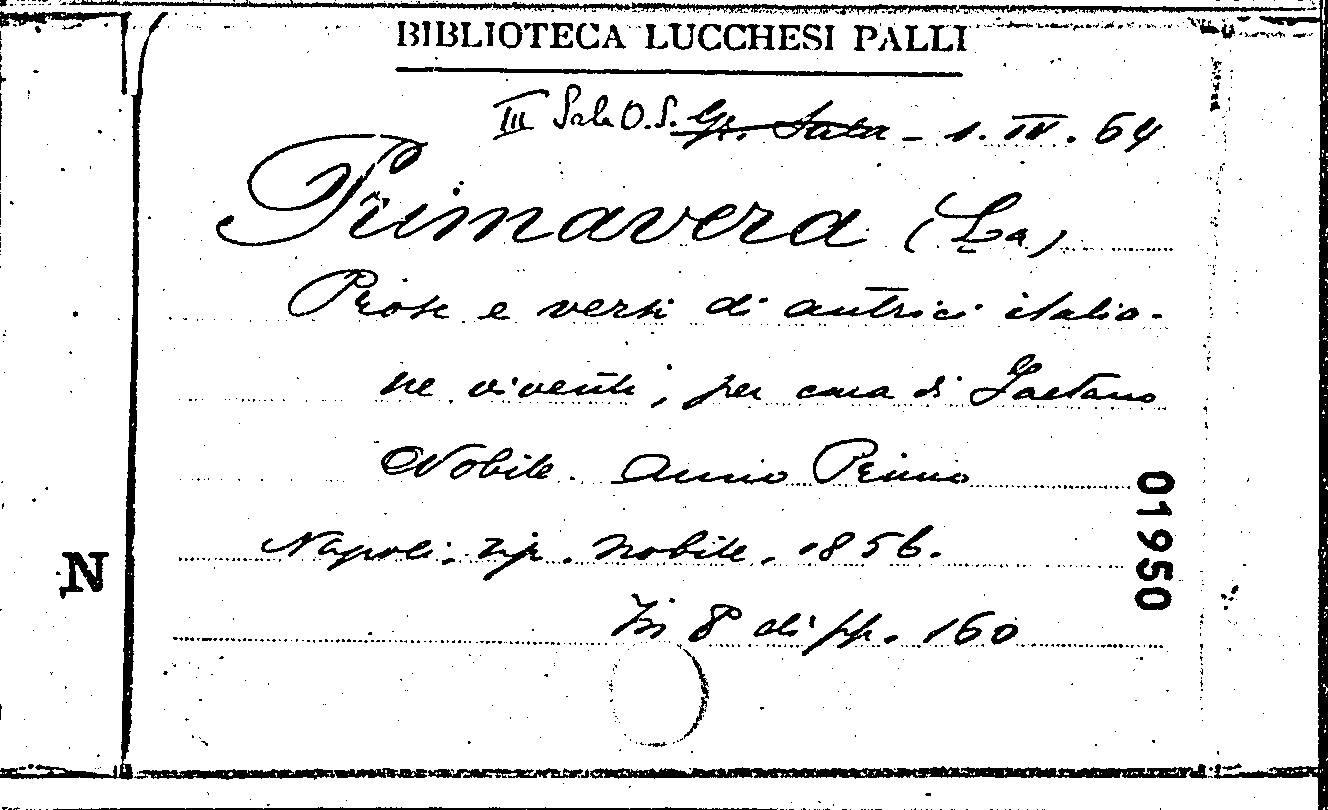 BIBLIOTECA LUCCHESI PALLI
III Sala O.S. Gr. Sala - 1. IV. 64
Primavera (La)
Prose e versi di autrici italia-
ne viventi, per cura di Gaetano
Nobile. Anno Primo
Napoli, tip. Nobile, 1856.
In 8° di pp. 160
N
01950